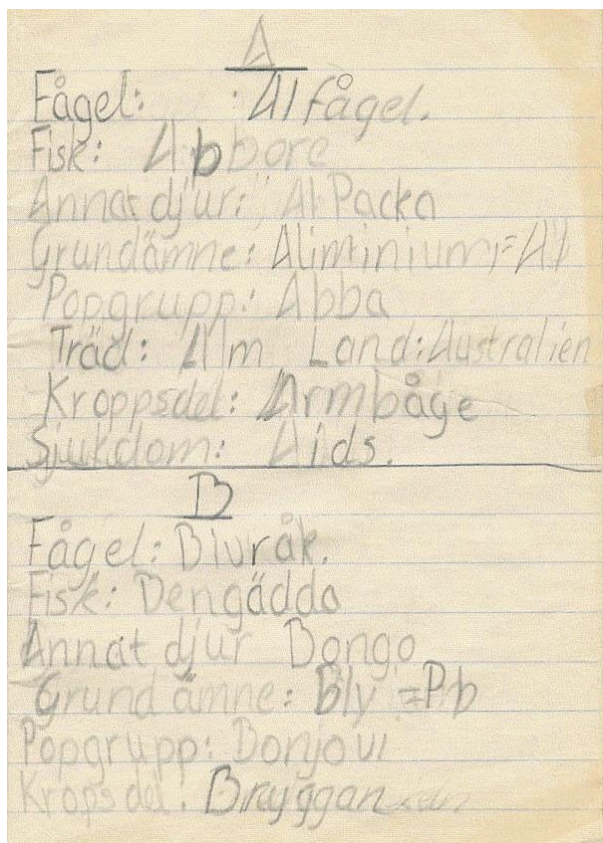 A
Fågel: Alfågel.
Fisk: Abbore
Annat djur: AlPacka
Grundämne: Aliminium = Al
Popgrupp: Abba
Träd: Alm Land: Australien
Kroppsdel: Armbåge
Sjukdom: Aids.
B
Fågel: Bivråk.
Fisk: Bengädda
Annat djur Bongo
Grund ämne: Bly = Pb
Popgrupp: Bonjovi
Kropsdel: